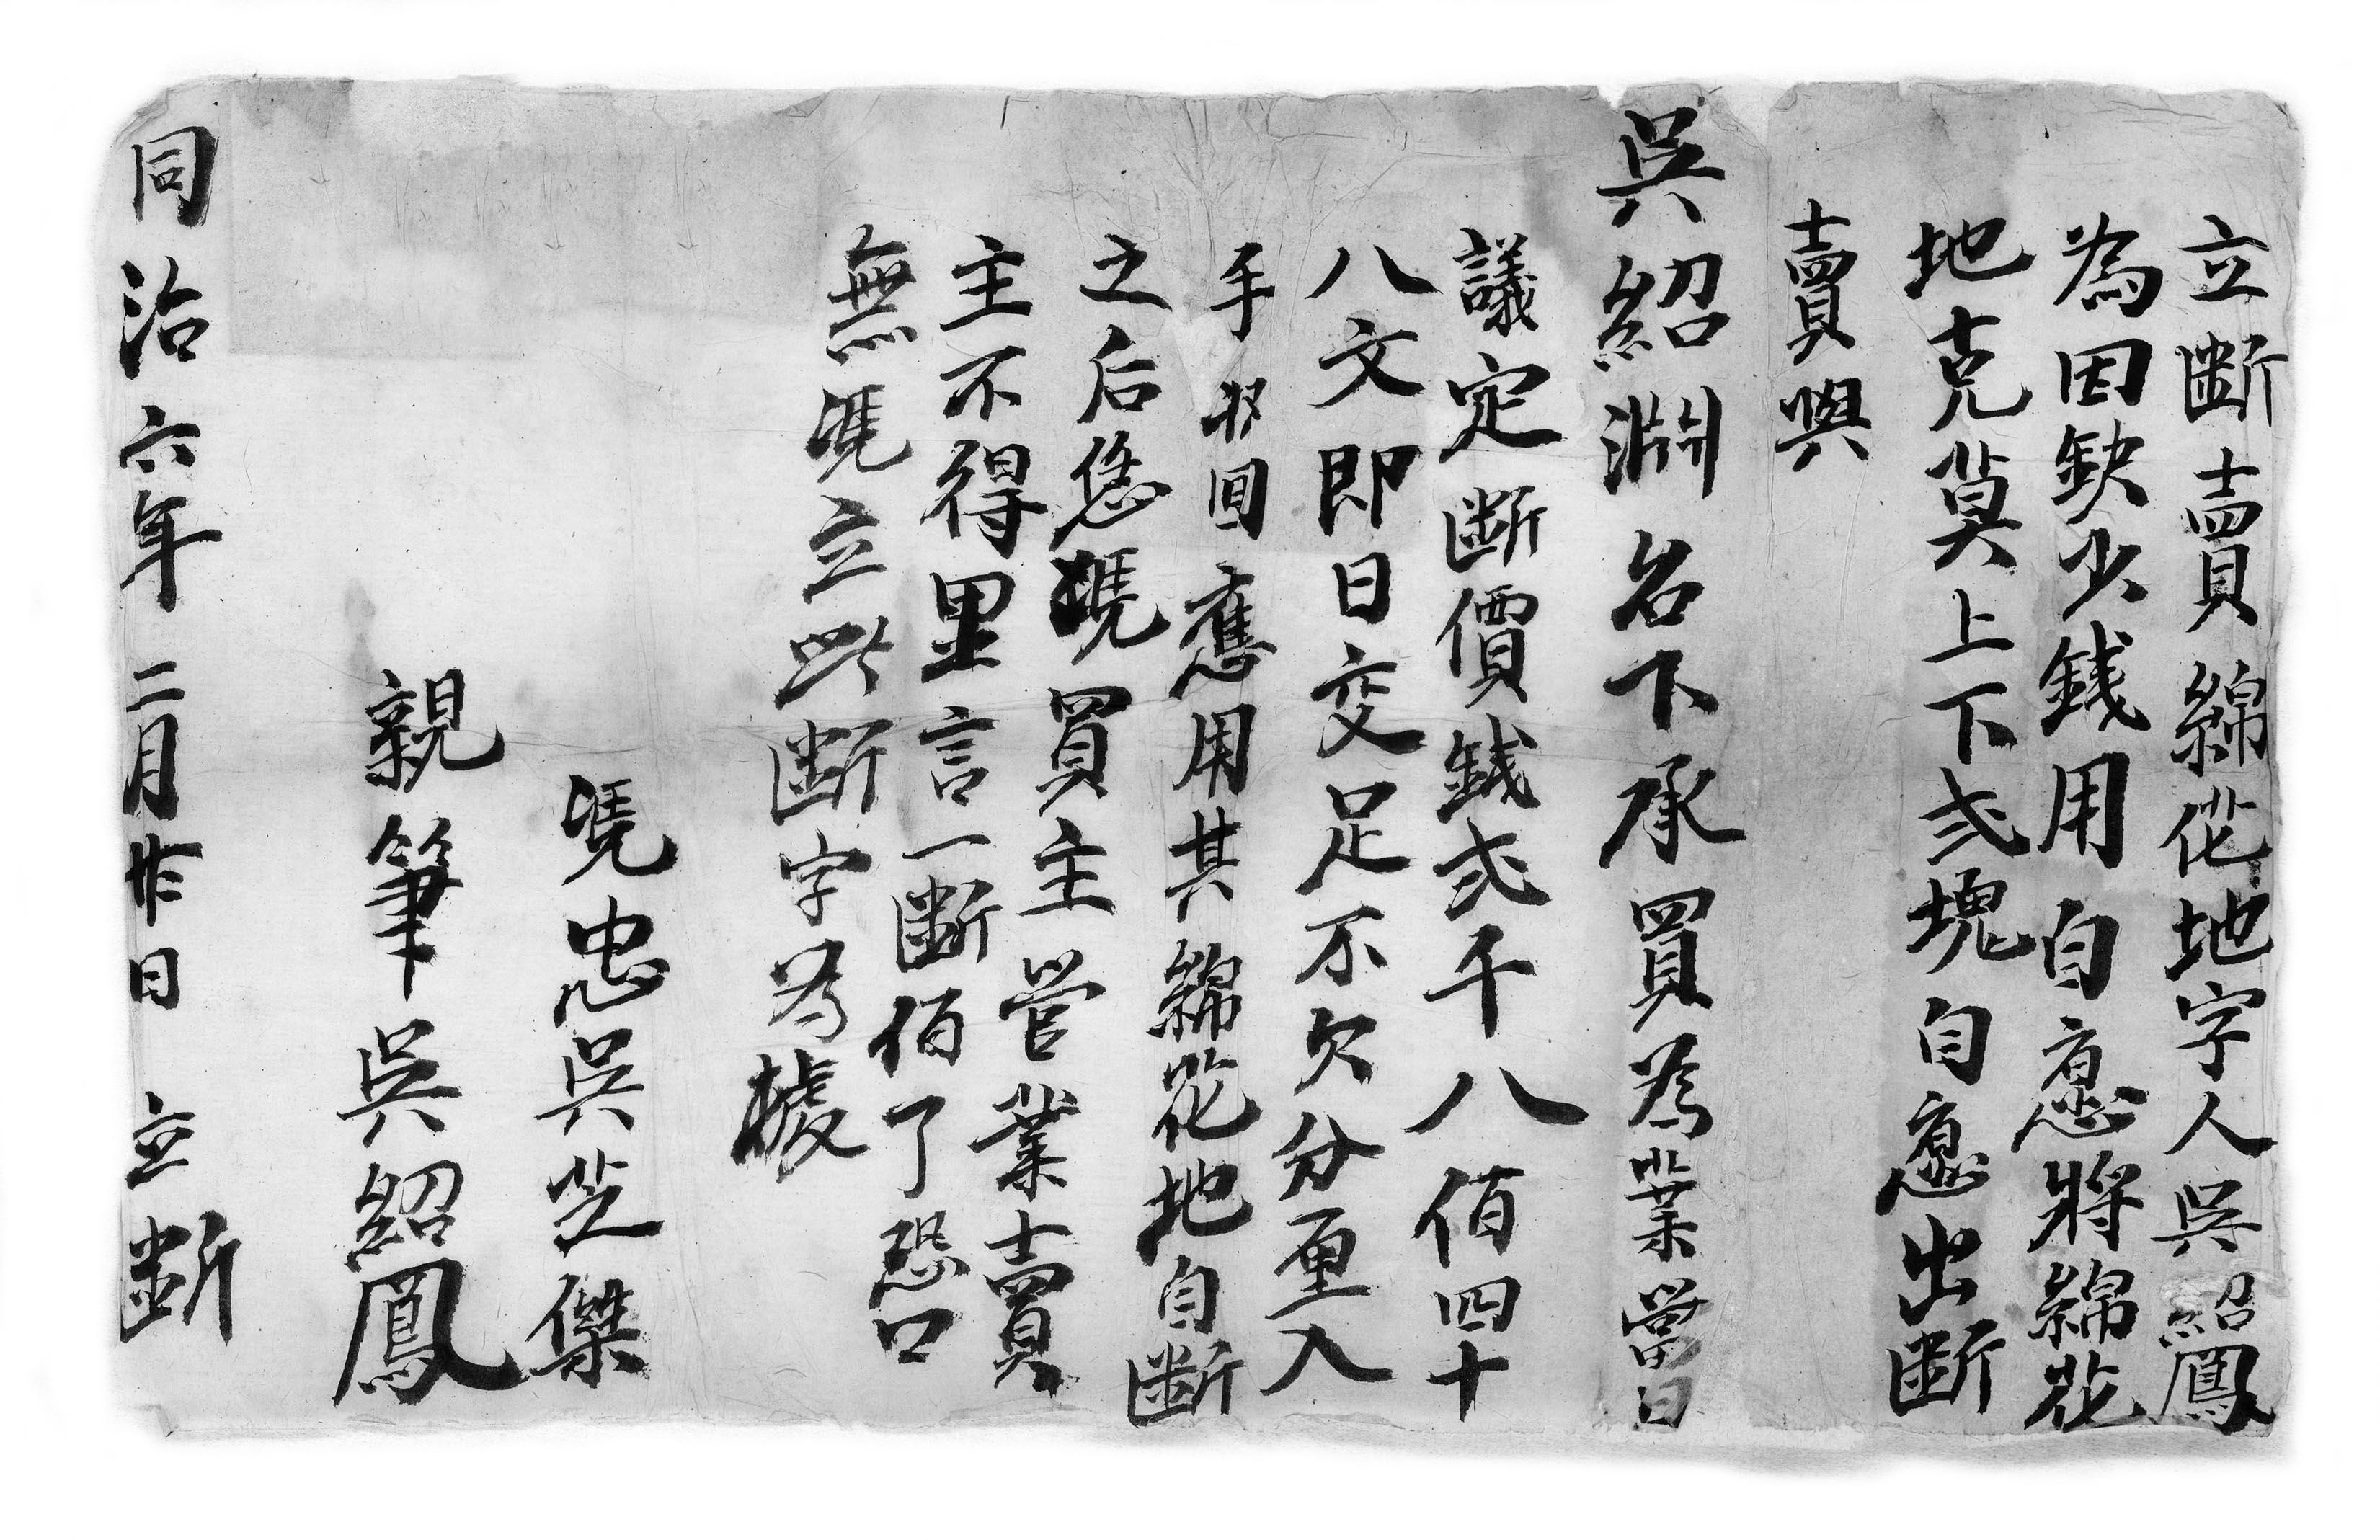 立断賣綿花地字人吳紹鳳
為因缺少錢用自愿將綿花
地克莫上下弍塊自愿出断
賣與
吳紹淵名下承買為業當日
議定断價錢弍千八佰四十
八文即日交足不欠分厘入
手收回應用其綿花地自断
之后恁凴買主管業賣
主不得里言一断佰了恐口
無凴立此断字為據
凴忠吳芝傑
親筆吳紹鳳
同治六年二月廿日 立断